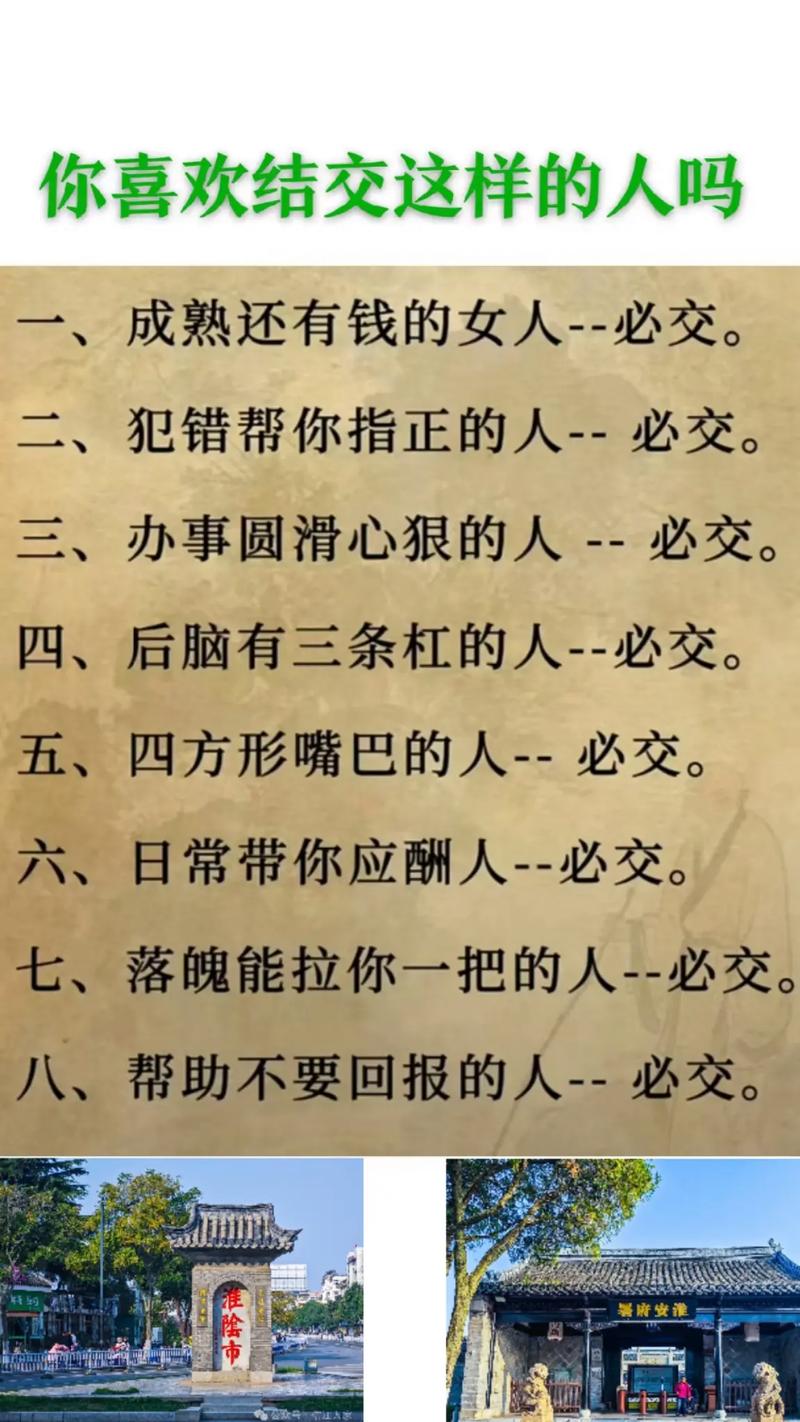 你喜欢结交这样的人吗
一、成熟还有钱的女人--必交。
二、犯错帮你指正的人-- 必交。
三、办事圆滑心狠的人 -- 必交。
四、后脑有三条杠的人--必交。
五、四方形嘴巴的人-- 必交。
六、日常带你应酬人--必交。
七、落魄能拉你一把的人--必交。
八、帮助不要回报的人-- 必交。
淮陰市
署府安淮